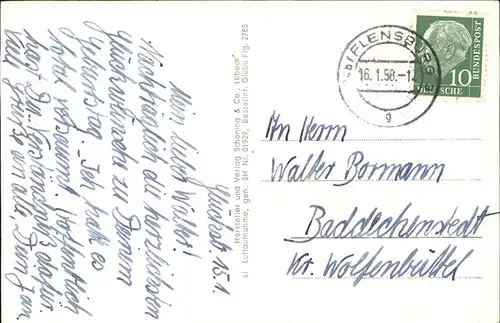 Glücksb. 15.1.
Mein lieber Walter!
Nachträglich die herzlichsten
Glückwünsche zu Deinem
Geburtstag. Ich hatte es
total versäumt, hoffentlich
hast Du Verständnis dafür
Viele Grüße an alle, Dein
Hersteller und Verlag Schöning & Co., Lübeck
si Luftaufnahme, gen. SH Nr. 01929, Bestellnr. Glübu Flg. 2785
FLENSBURG
16.1.58.-1
g
10
DEUTSCHE
BUNDESPOST
An Herrn
Walter Bormann
Baddeckenstedt
Kr. Wolfenbüttel